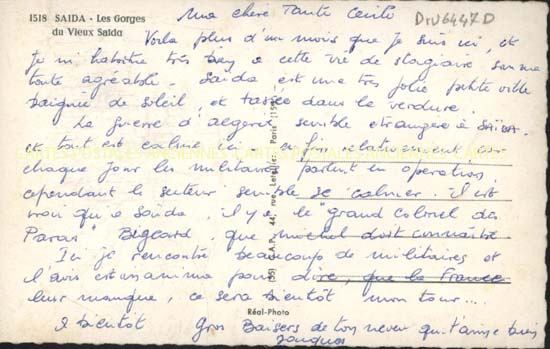 1518 SAIDA - Les Gorges
du Vieux Saïda
Ma chère Tante
DIV6447D
Voila plus d'un mois que je suis ici, et
je m'habitue très bien à cette vie de stagiaire somme
toute agréable. Saïda est une très jolie petite ville
baignée de soleil, et tassée dans la verdure.
La guerre d'algerie semble etrangère à SAÏDA.
et tout est calme ici enfin relativement, car
chaque jour les militaires partent en operation,
cependant le secteur semble se calmer. Il est
vrai qu'a Saïda, il y a le "grand colonel des
Paras" Bigeard, que michel doit connaître
Ici je rencontre beaucoup de militaires et
l'avis est unanime pour dire, que la France
leur manque, ce sera bientôt mon tour...
A bientôt Gros Baisers de ton neveu qui t'aime bien
Jacques
(55) C.A.P., 44, rue Letellier, Paris (15e)
Réal-Photo